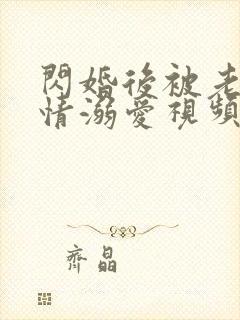 閃婚後被老
情溺愛視頻
齊晶